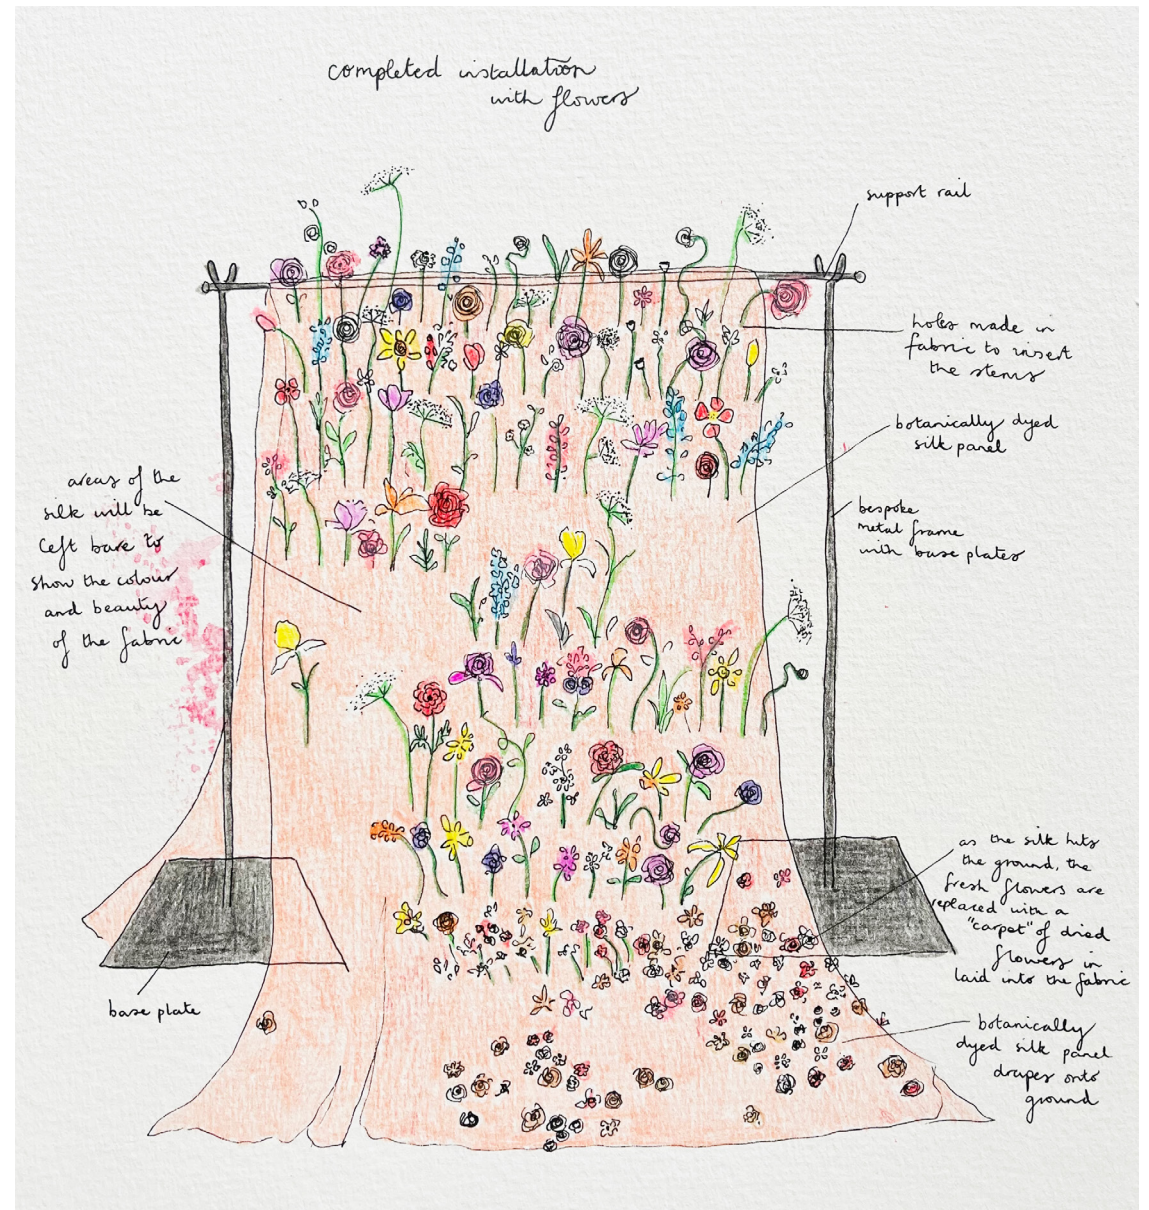 completed installation
with flowers
support rail
holes made in
fabric to insert
the stems
botanically dyed
silk panel
areas of the
silk will be
left bare to
show the colour
and beauty
of the fabric
bespoke
metal frame
with base plates
as the silk hits
the ground, the
fresh flowers are
replaced with a
"carpet" of dried
flowers in
laid into the fabric
base plate
botanically
dyed silk panel
drapes onto
ground